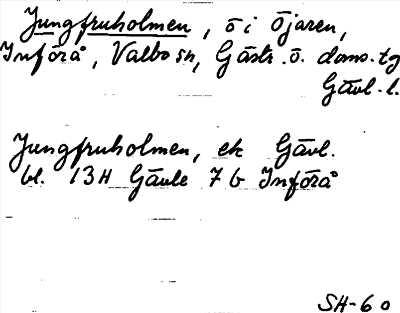 Jungfruholmen, ö i Öjaren,
Införå, Valbo sn, Gästr. ö. doms. tg
Gävl. l.
Jungfruholmen, ek Gävl.
bl. 13H Gävle 7 b Införå
SH-60